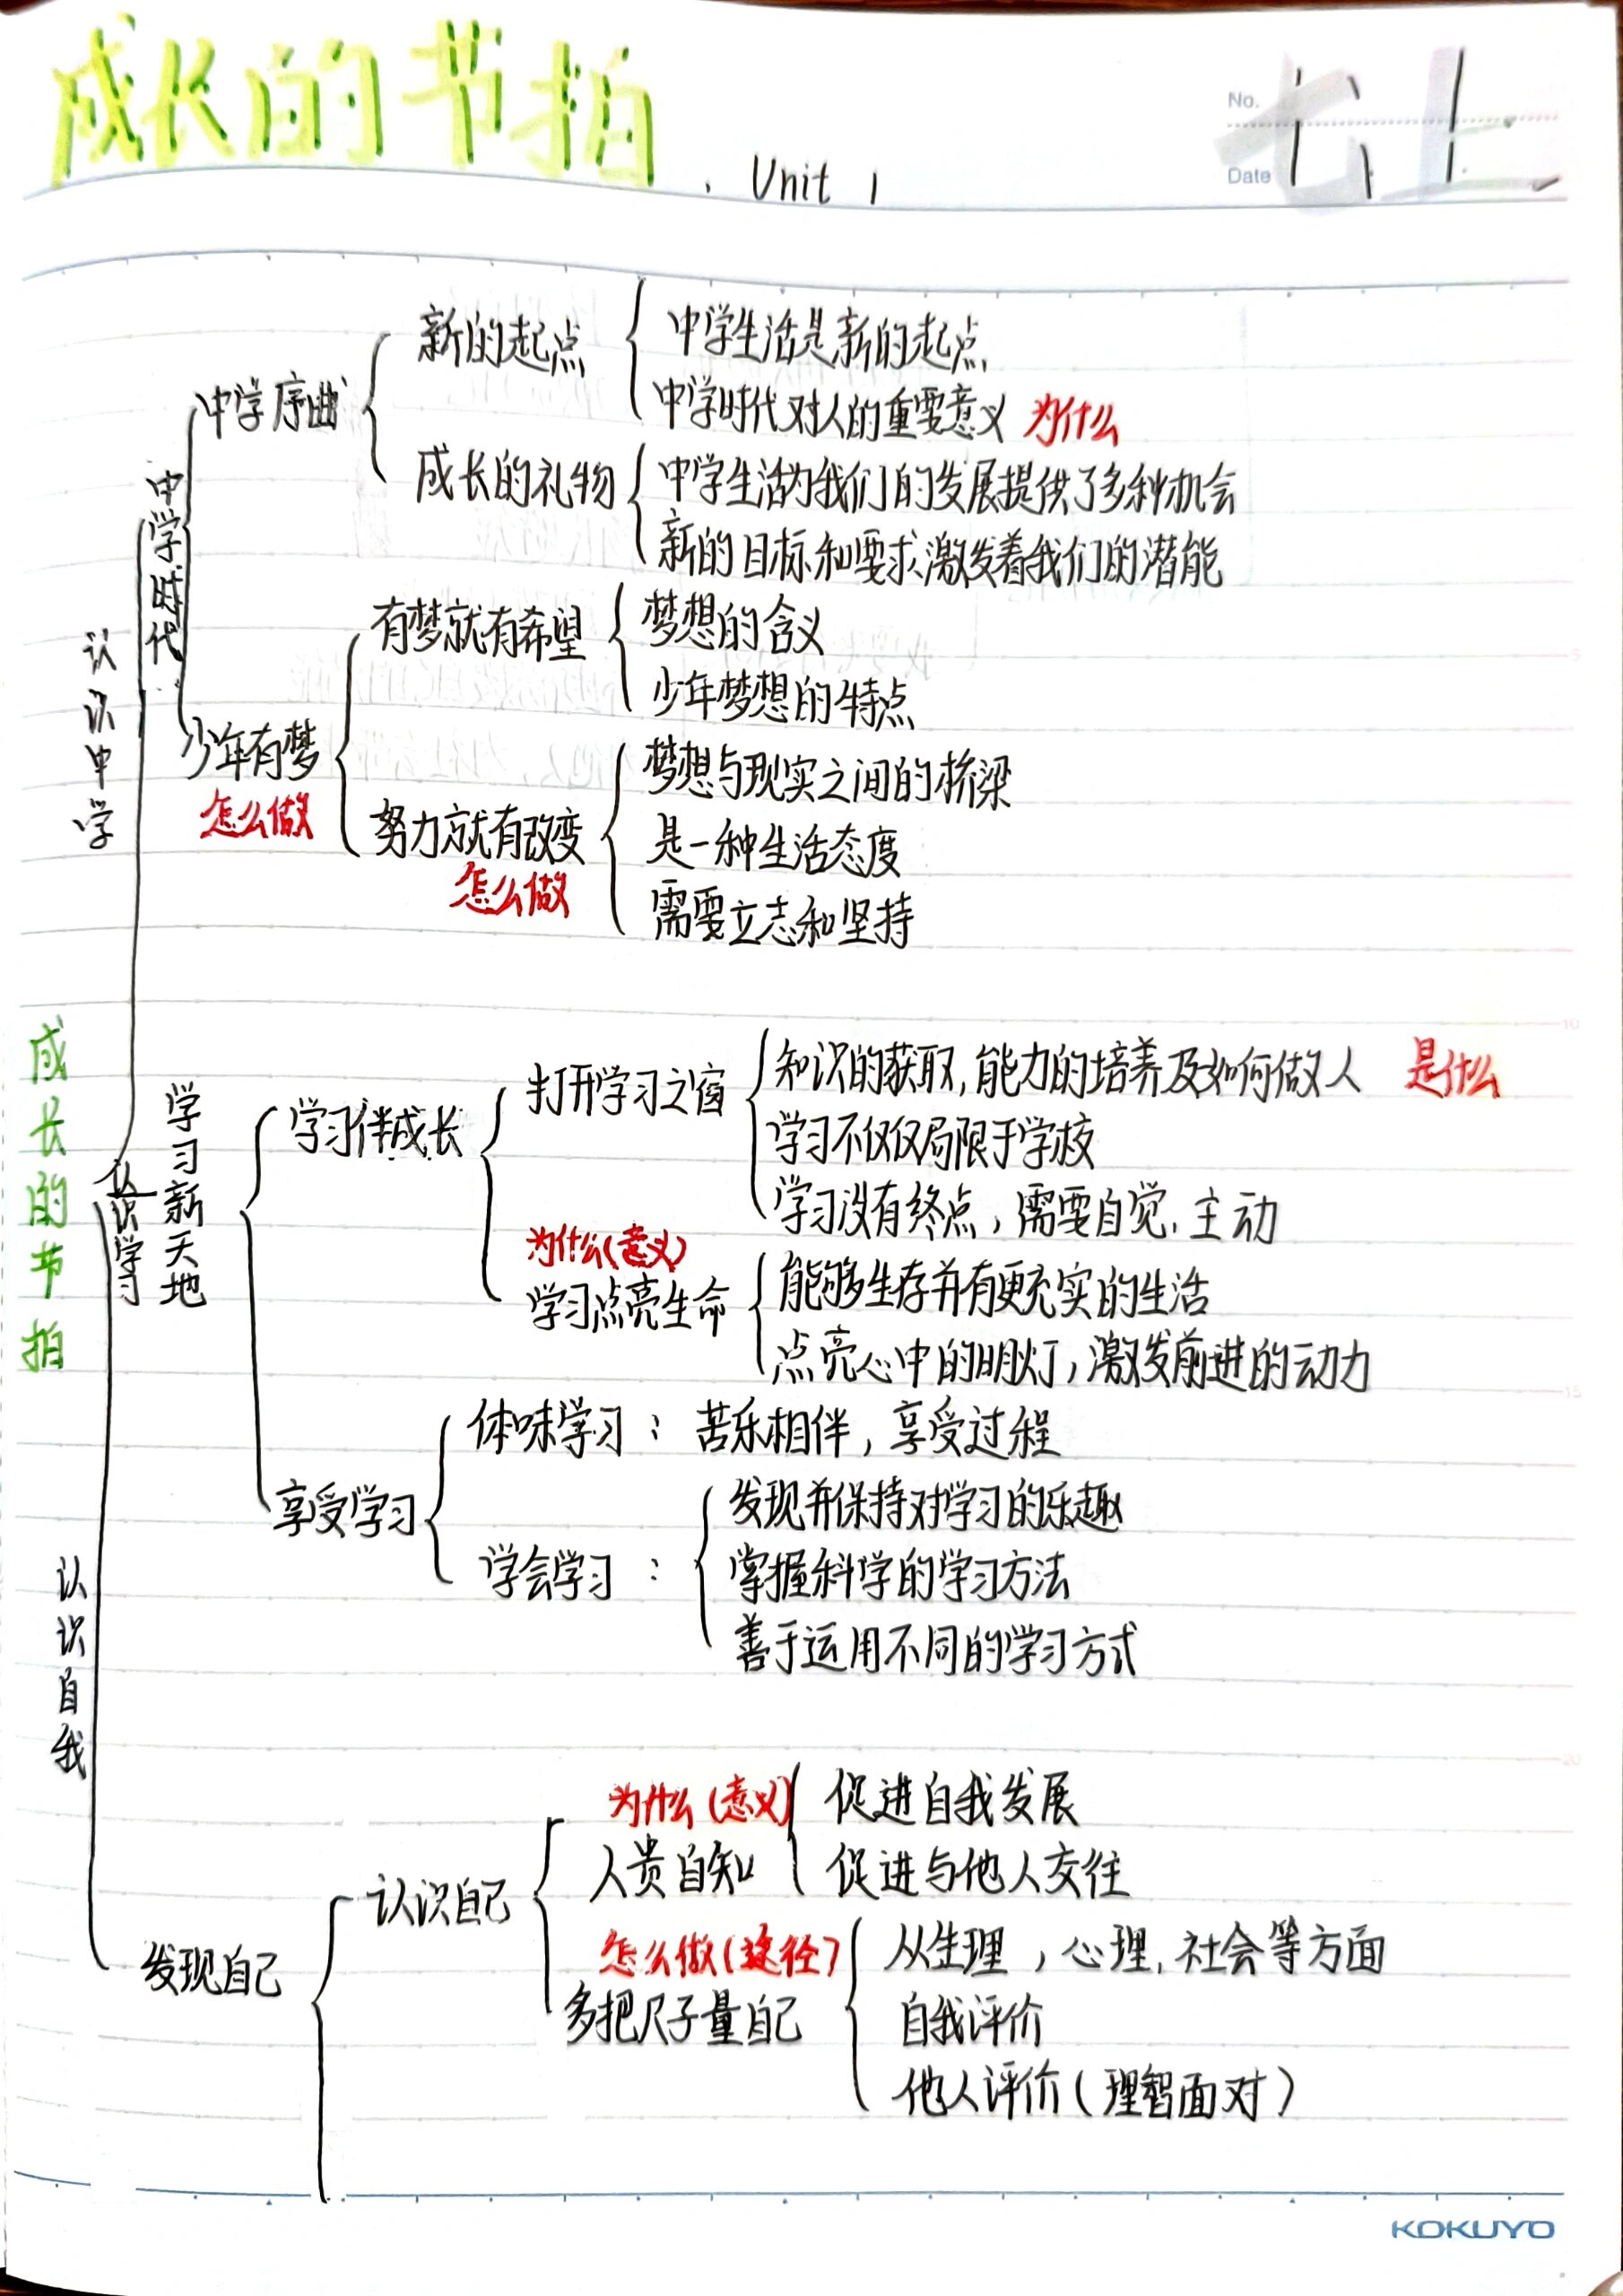 成长的节拍. Unit 1
No. 七上
Date
认识中学
中学时代
中学序曲
新的起点
中学生活是新的起点
中学时代对人的重要意义 为什么
成长的礼物
中学生活为我们的发展提供了多种机会
新的目标和要求激发着我们的潜能
少年有梦
怎么做
有梦就有希望
梦想的含义
少年梦想的特点
努力就有改变
怎么做
梦想与现实之间的桥梁
是一种生活态度
需要立志和坚持
成长的节拍
认识学习
学习新天地
学习伴成长
打开学习之窗
知识的获取,能力的培养及如何做人 是什么
学习不仅仅局限于学校
学习没有终点,需要自觉.主动
为什么(意义)
学习点亮生命
能够生存并有更充实的生活
点亮心中的明灯,激发前进的动力
享受学习
体味学习: 苦乐相伴,享受过程
学会学习:
发现并保持对学习的乐趣
掌握科学的学习方法
善于运用不同的学习方式
认识自我
发现自己
认识自己
为什么(意义)
人贵自知
促进自我发展
促进与他人交往
怎么做(途径)
多把尺子量自己
从生理,心理,社会等方面
自我评价
他人评价(理智面对)
KOKUYO